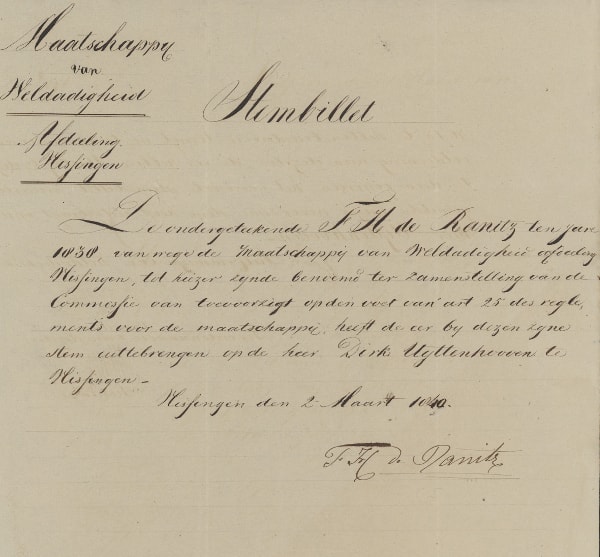 Maatschappij
van
Weldadigheid
Afdeeling
Stembillet
De ondergeteekende F H de Ranitz ten jare
1838, van wege de Maatschappij van Weldadigheid afdeeling
tot kiezer zynde benoemd ter zamenstelling van de
Commissie van toevoorzigt op den voet van art 25 des regle,
ments voor de maatschappij, heeft de eer by dezen zyne
stem uittebrengen op de heer Dirk Uyttenhooven te
den 2 Maart 1840.
F H de Ranitz